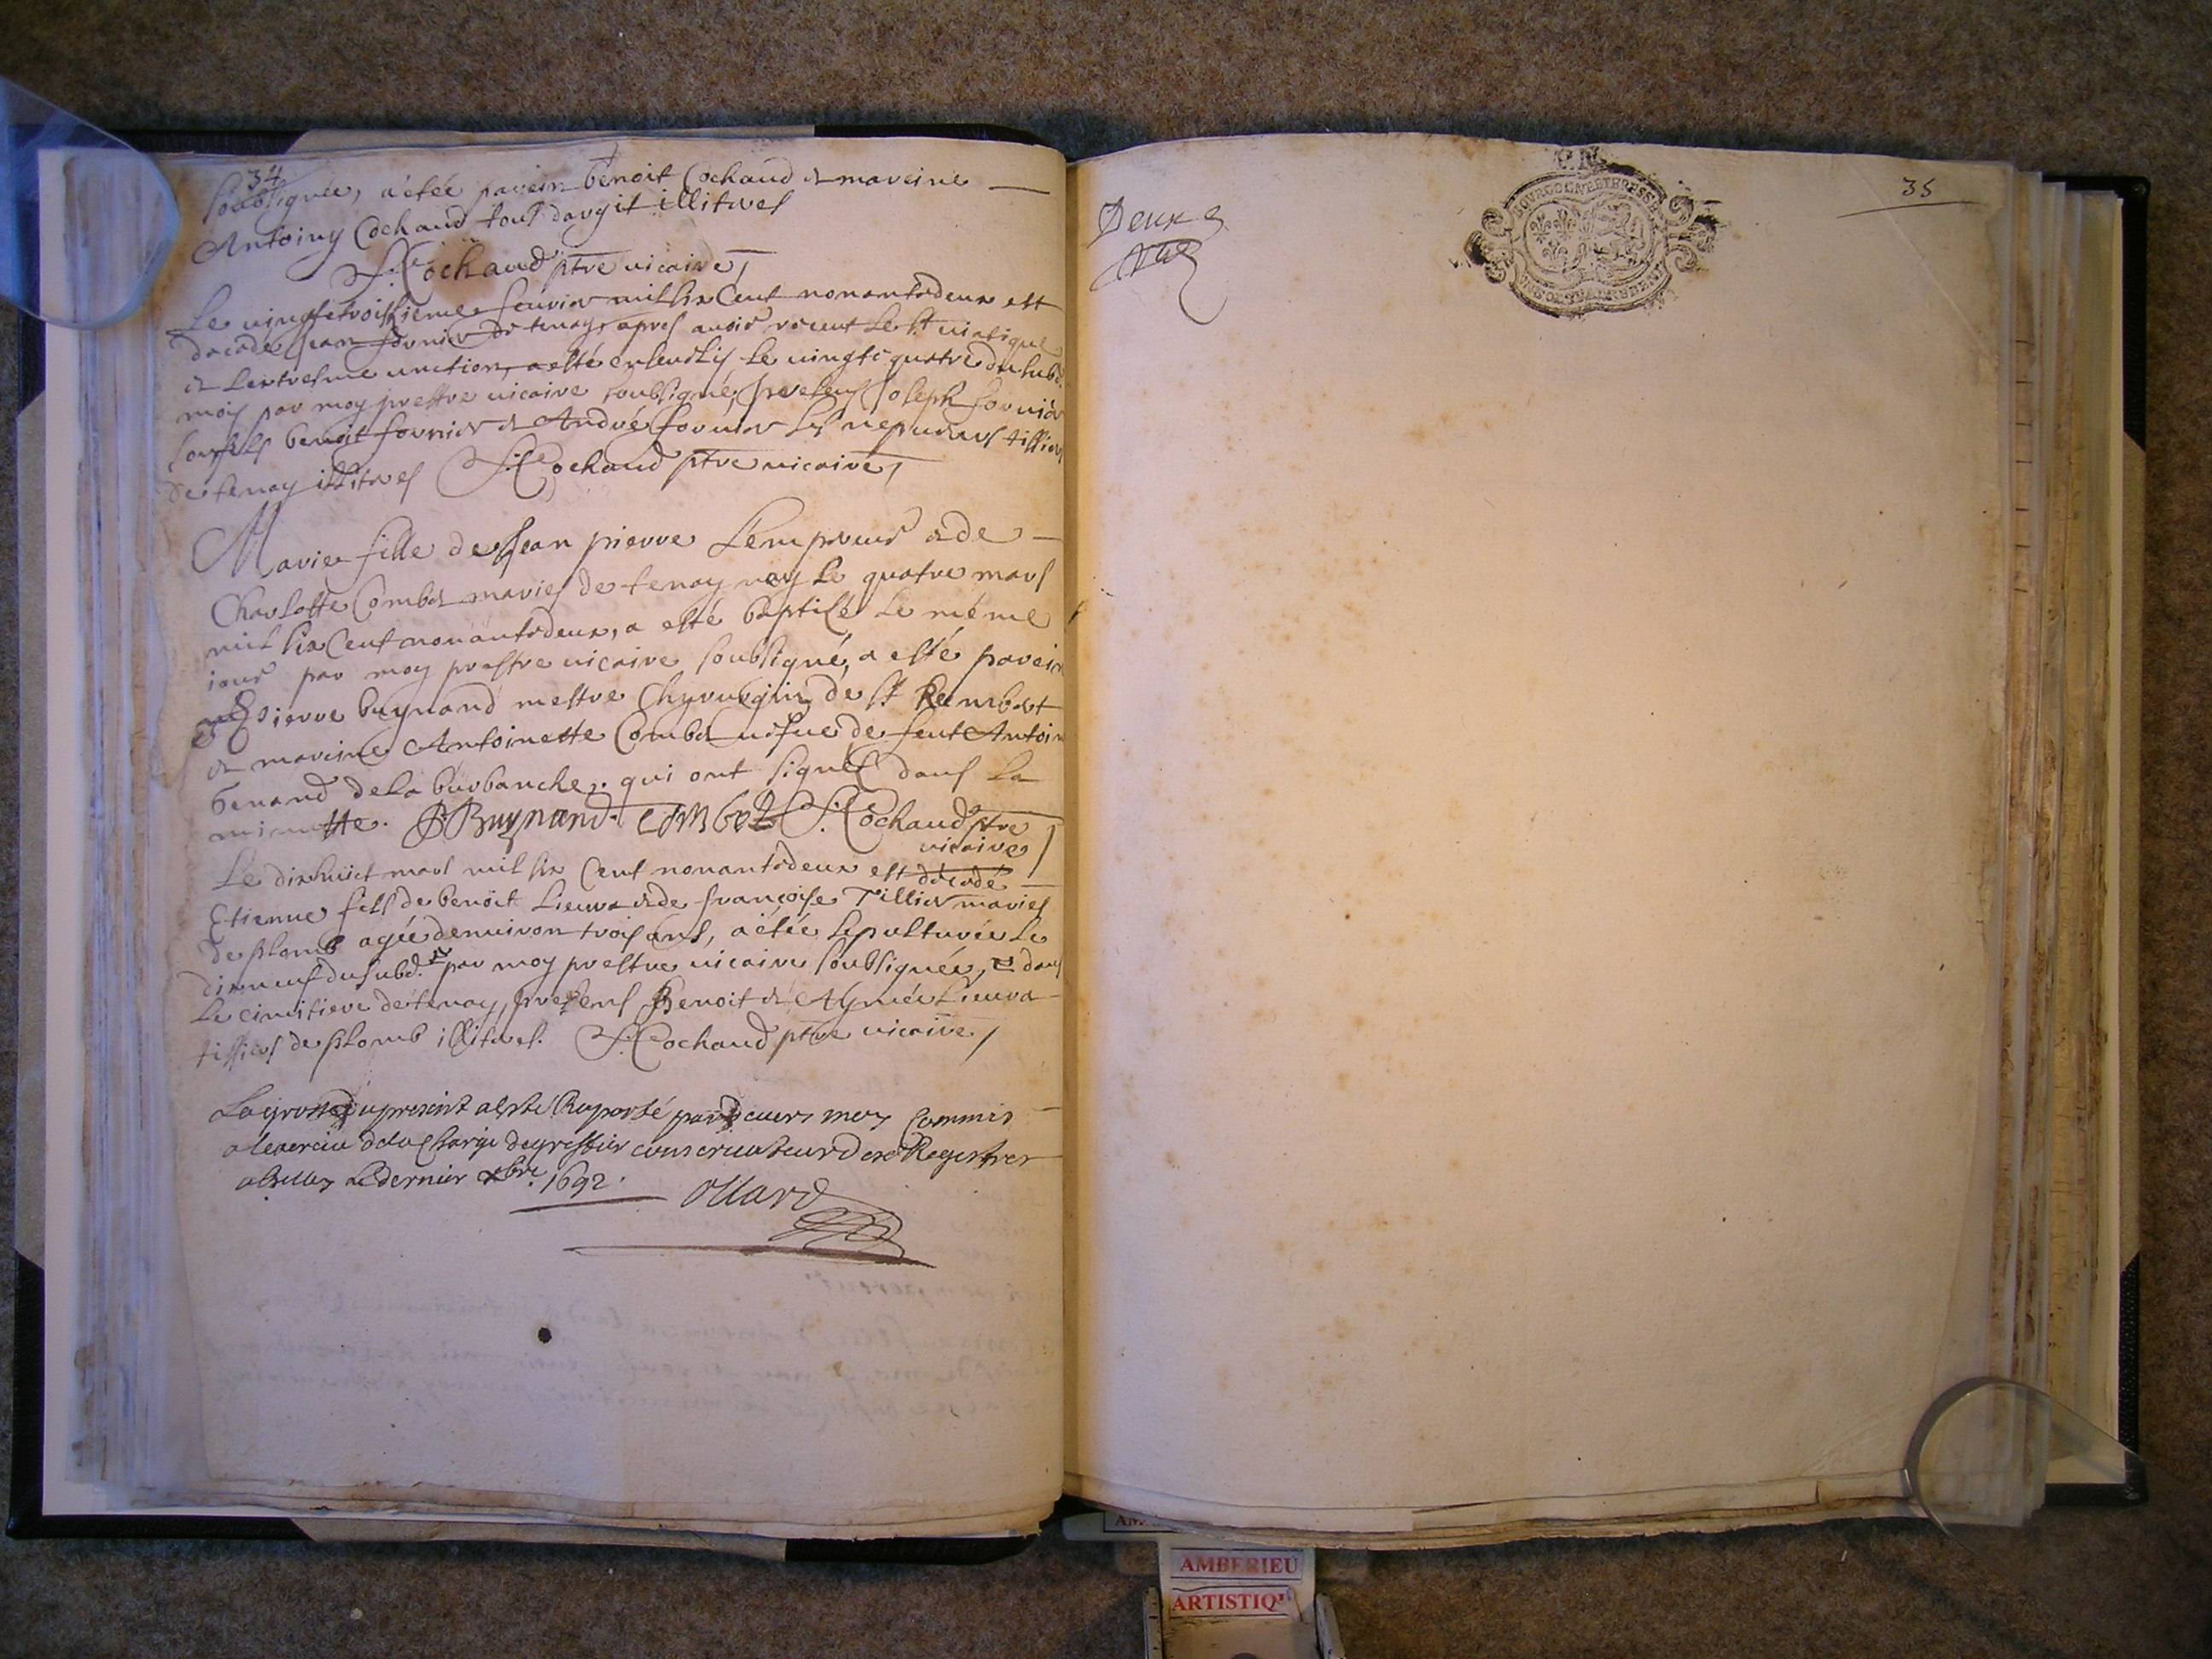 34
soubsignée, a étée parein benoit Cochaud & mareine
Antoiny Cochaud tous dargit illitres
F. Cochaud ptre vicaire
Le vingtetroisieme feuvrier mil six Cent nonantedeux est
decedé Jean fornier de tenay, apres avoir receut le st viatique
& Lextresme unction, a esté enseveLy Le vingte quatre du subd.
mois par moy prestre vicaire soubsigné, presens Joseph fornier
son fils benoit fornier & André fornier ses nepveux tissiers
de tenay illitres F. Cochaud ptre vicaire
Marie fille de Jean pierre Lempereur & de
CharLotte Combet mariés de tenay néy Le quatre mars
mil six Cent nonantedeux, a esté baptisé Le méme
iour par moy prestre vicaire soubsigné, a esté parein
pierre buynand mestre Chyrurgin de st Rembert
& mareine Antoinette Combet vefue de feut Antoin
benand de La burbanche, qui ont signés dans La
minutte. P Buynand. Combet F. Cochaud ptre
vicaire
Le dixhuict mars mil six Cent nonantedeux est décedé
Etienne fils de benoit Lieura & de françoise Tillier mariés
de pLomb agée denviron trois ans, a étée sepulturée Le
dixneuf du subd. par moy prestre vicaire soubsignée, & dans
Le cimitiere de tenay, presens Benoit & Aymée Lieura
tissiers de pLomb illitres. F. Cochaud ptre vicaire
La grosse du present a esté Raporté par devers moy Commis
a lexercice de la Charge de greffier conservateur desd Registres
a belley Le dernier xbre 1692.
ollard
35
Deux
BOURGOGNE ET BRESSE
AMBERIEU
ARTISTIQU